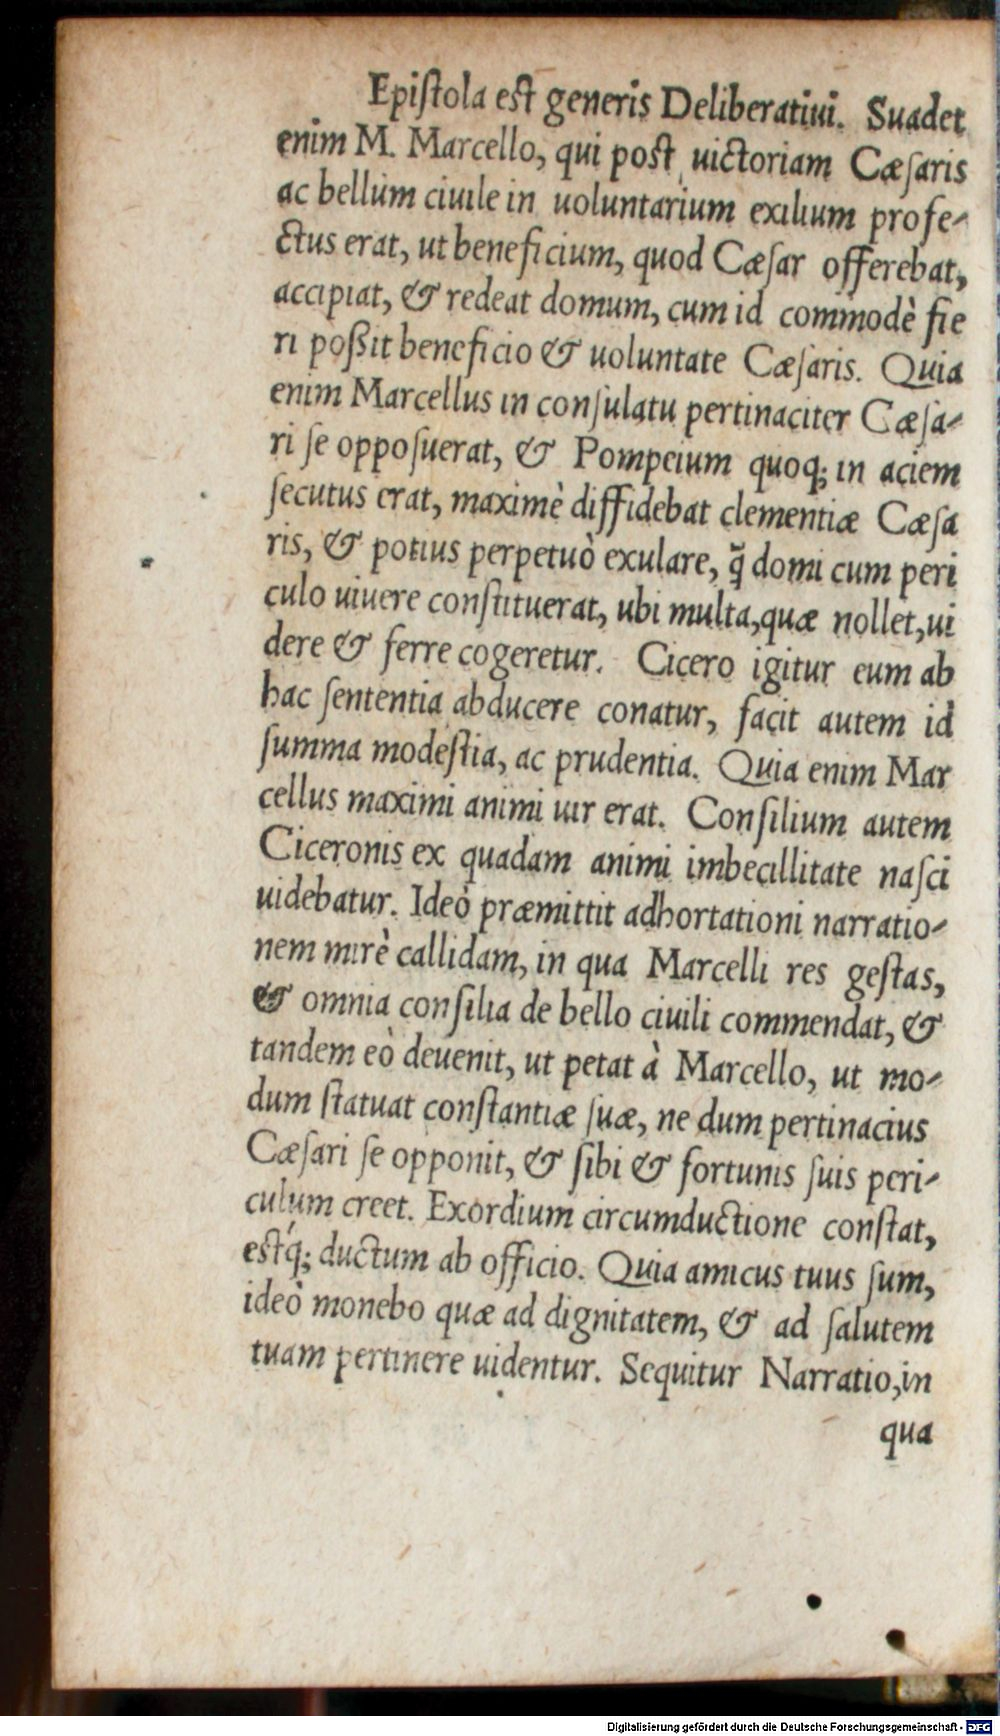 Epiſtola eſt generis Deliberatiui. Suadet
enim M. Marcello, qui poſt uictoriam Cæſaris
ac bellum ciuile in uoluntarium exilium profe-
ctus erat, ut beneficium, quod Cæſar offerebat,
accipiat, & redeat domum, cum id commodè fie
ri poßit beneficio & uoluntate Cæſaris. Quia
enim Marcellus in conſulatu pertinaciter Cæſa-
ri ſe oppoſuerat, & Pompeium quoq; in aciem
ſecutus erat, maximè diffidebat clementiæ Cæſa
ris, & potius perpetuò exulare, q̃ domi cum peri
culo uiuere conſtituerat, ubi multa,quæ nollet,ui
dere & ferre cogeretur. Cicero igitur eum ab
hac ſententia abducere conatur, facit autem id
ſumma modeſtia, ac prudentia. Quia enim Mar
cellus maximi animi uir erat. Conſilium autem
Ciceronis ex quadam animi imbecillitate naſci
uidebatur. Ideò præmittit adhortationi narratio-
nem mirè callidam, in qua Marcelli res geſtas,
& omnia conſilia de bello ciuili commendat, &
tandem eò deuenit, ut petat à Marcello, ut mo-
dum ſtatuat conſtantiæ ſuæ, ne dum pertinacius
Cæſari ſe opponit, & ſibi & fortunis ſuis peri-
culum creet. Exordium circumductione conſtat,
eſtq́; ductum ab officio. Quia amicus tuus ſum,
ideò monebo quæ ad dignitatem, & ad ſalutem
tuam pertinere uidentur. Sequitur Narratio,in
qua
Digitalisierung gefördert durch die Deutsche Forschungsgemeinschaft - DFG